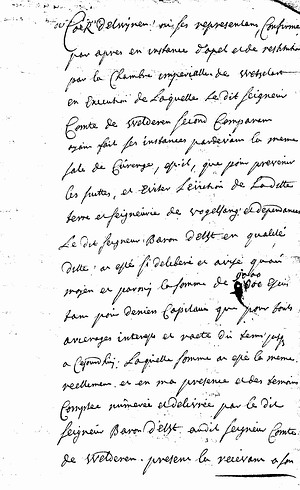 ses representans, Confirmé
par apres en instance d'apel et de restitution
par la Chambre imperialle de Wetzlar
en Execution de Laquelle Le dit seigneur
Comte de Welderen second Comparant
ayant fait ses instances pardevant la meme
sale de Curenge, est il, que pour prevenir
les suittes, et Eviter L'eviction de Ladette
terre et seigneurie de vogelsang et dependances
Le dit seigneur Baron d'Elst en qualité
ditte, at esté si deliberé et avisé qu'au
moyen et parmy la somme de
tam pour denier Capitaux que pour touts
arierages interest et racte du tems jusq
a Cejourdhuy, Laquelle somme at esté la meme
reellement et en ma presence et des temoins
Comptee numeree et delivrée par le dit
seigneur Baron d'elst audit seigneur Comte
de Welderen, present la recevant a son